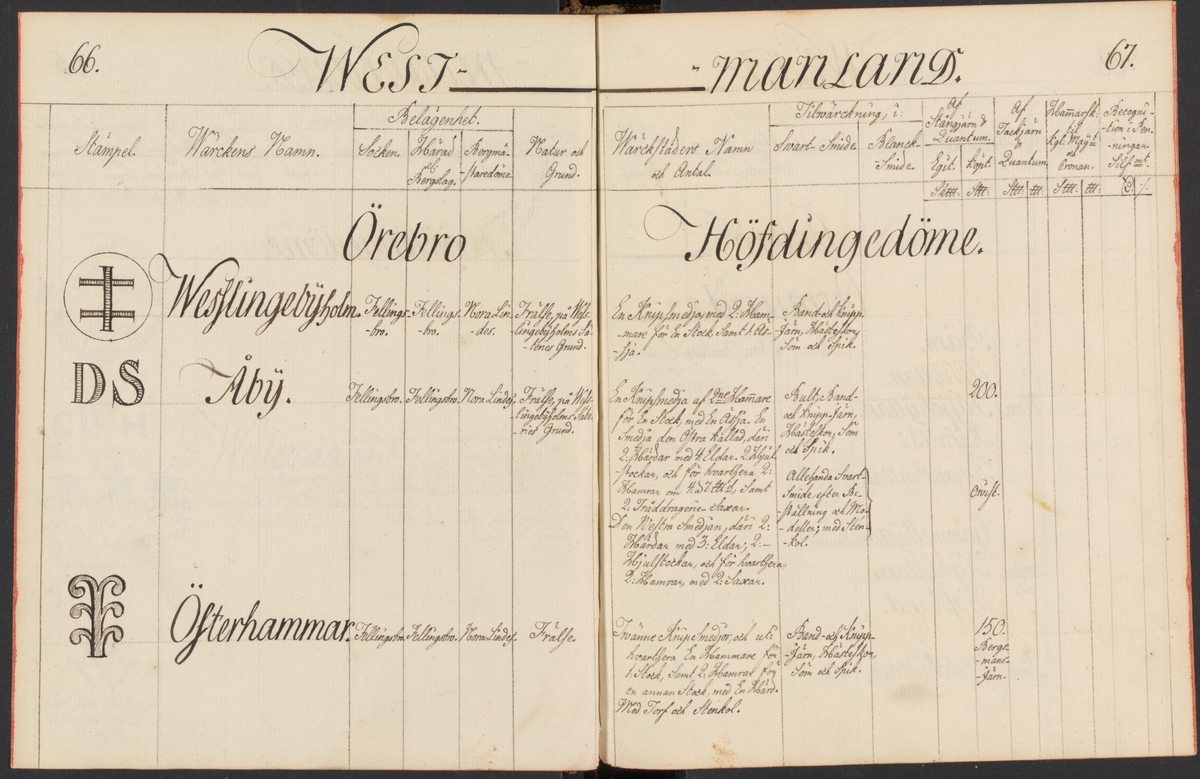 66.
WEST-
-MANLAND.
67.
Stämpel.
Wärckens Namn.
Belägenhet.
Socken.
Härad
och
Bergslag.
Bergmä-
-staredöme
Natur och
Grund.
Wärckstäders Namn
och Antal.
Tilwärckning, i:
Svart-Smide.
Blanck-
-Smide.
Af
Stångjärn &
Quantum.
Egit.
Köpt.
Af
Tackjärn
Quantum
Hammarsk:
til
Kgl. Maÿt
och
Cronan.
Recogni-
-tion i Pen-
-ningar
Silf mt.
Örebro
Höfdingedöme.
Wesslingebÿholm.
Fellings-
-bro.
Fellings-
-bro.
Nora Lin-
-des.
Frälse, på Wäs-
-lingebÿholms Sä-
-teries Grund.
En Knipsmedja, med 2: Ham-
-mare för En Stock samt 1. Äs-
-sja.
Band- och Knipp-
-Järn, Hästeskor,
Söm och Spik.
DS
Åbÿ.
Fellingsbro.
Fellingsbro.
Nora Lindes.
Frälse, på Wäst-
-lingebÿholms Säte-
-ries Grund.
En Knipsmedja af 2ne Hammare
för En Stock, med En Ässja. En
Smedja den Östra kallad, däri
2: Härdar med 4: Eldar. 2: Hjul-
-stockar, och för hvarthera 2:
Hamrar om 4. à 7 ℔d, samt
2: Tråddragerie-Saxar.
Den Westra Smedjan, däri 2:
Härdar med 3: Eldar; 2:-
Hjulstockar, och för hvarthera,
2: Hamrar, med 2: Saxar.
Bult, Band-
och Knipp-Järn,
Hästeskor, Söm
och Spik.
Allehanda Svart-
-Smide, efter Be-
-ställning och Mo-
-deller; med Sten-
-kol.
200.
Ovist.
Österhammar.
Fellingsbro.
Fellingsbro.
Nora Lindes.
Frälse.
Tvänne Knipsmedjor, och uti
hvarthera En Hammare för
1: Stock, samt 2: Hamrar för
en annan Stock, med En Härd.
Med Torf och Stenkol.
Band- och Knipp-
-Järn, Hästeskor,
Söm och Spik.
150.
Bergs-
-mans-
-Järn.